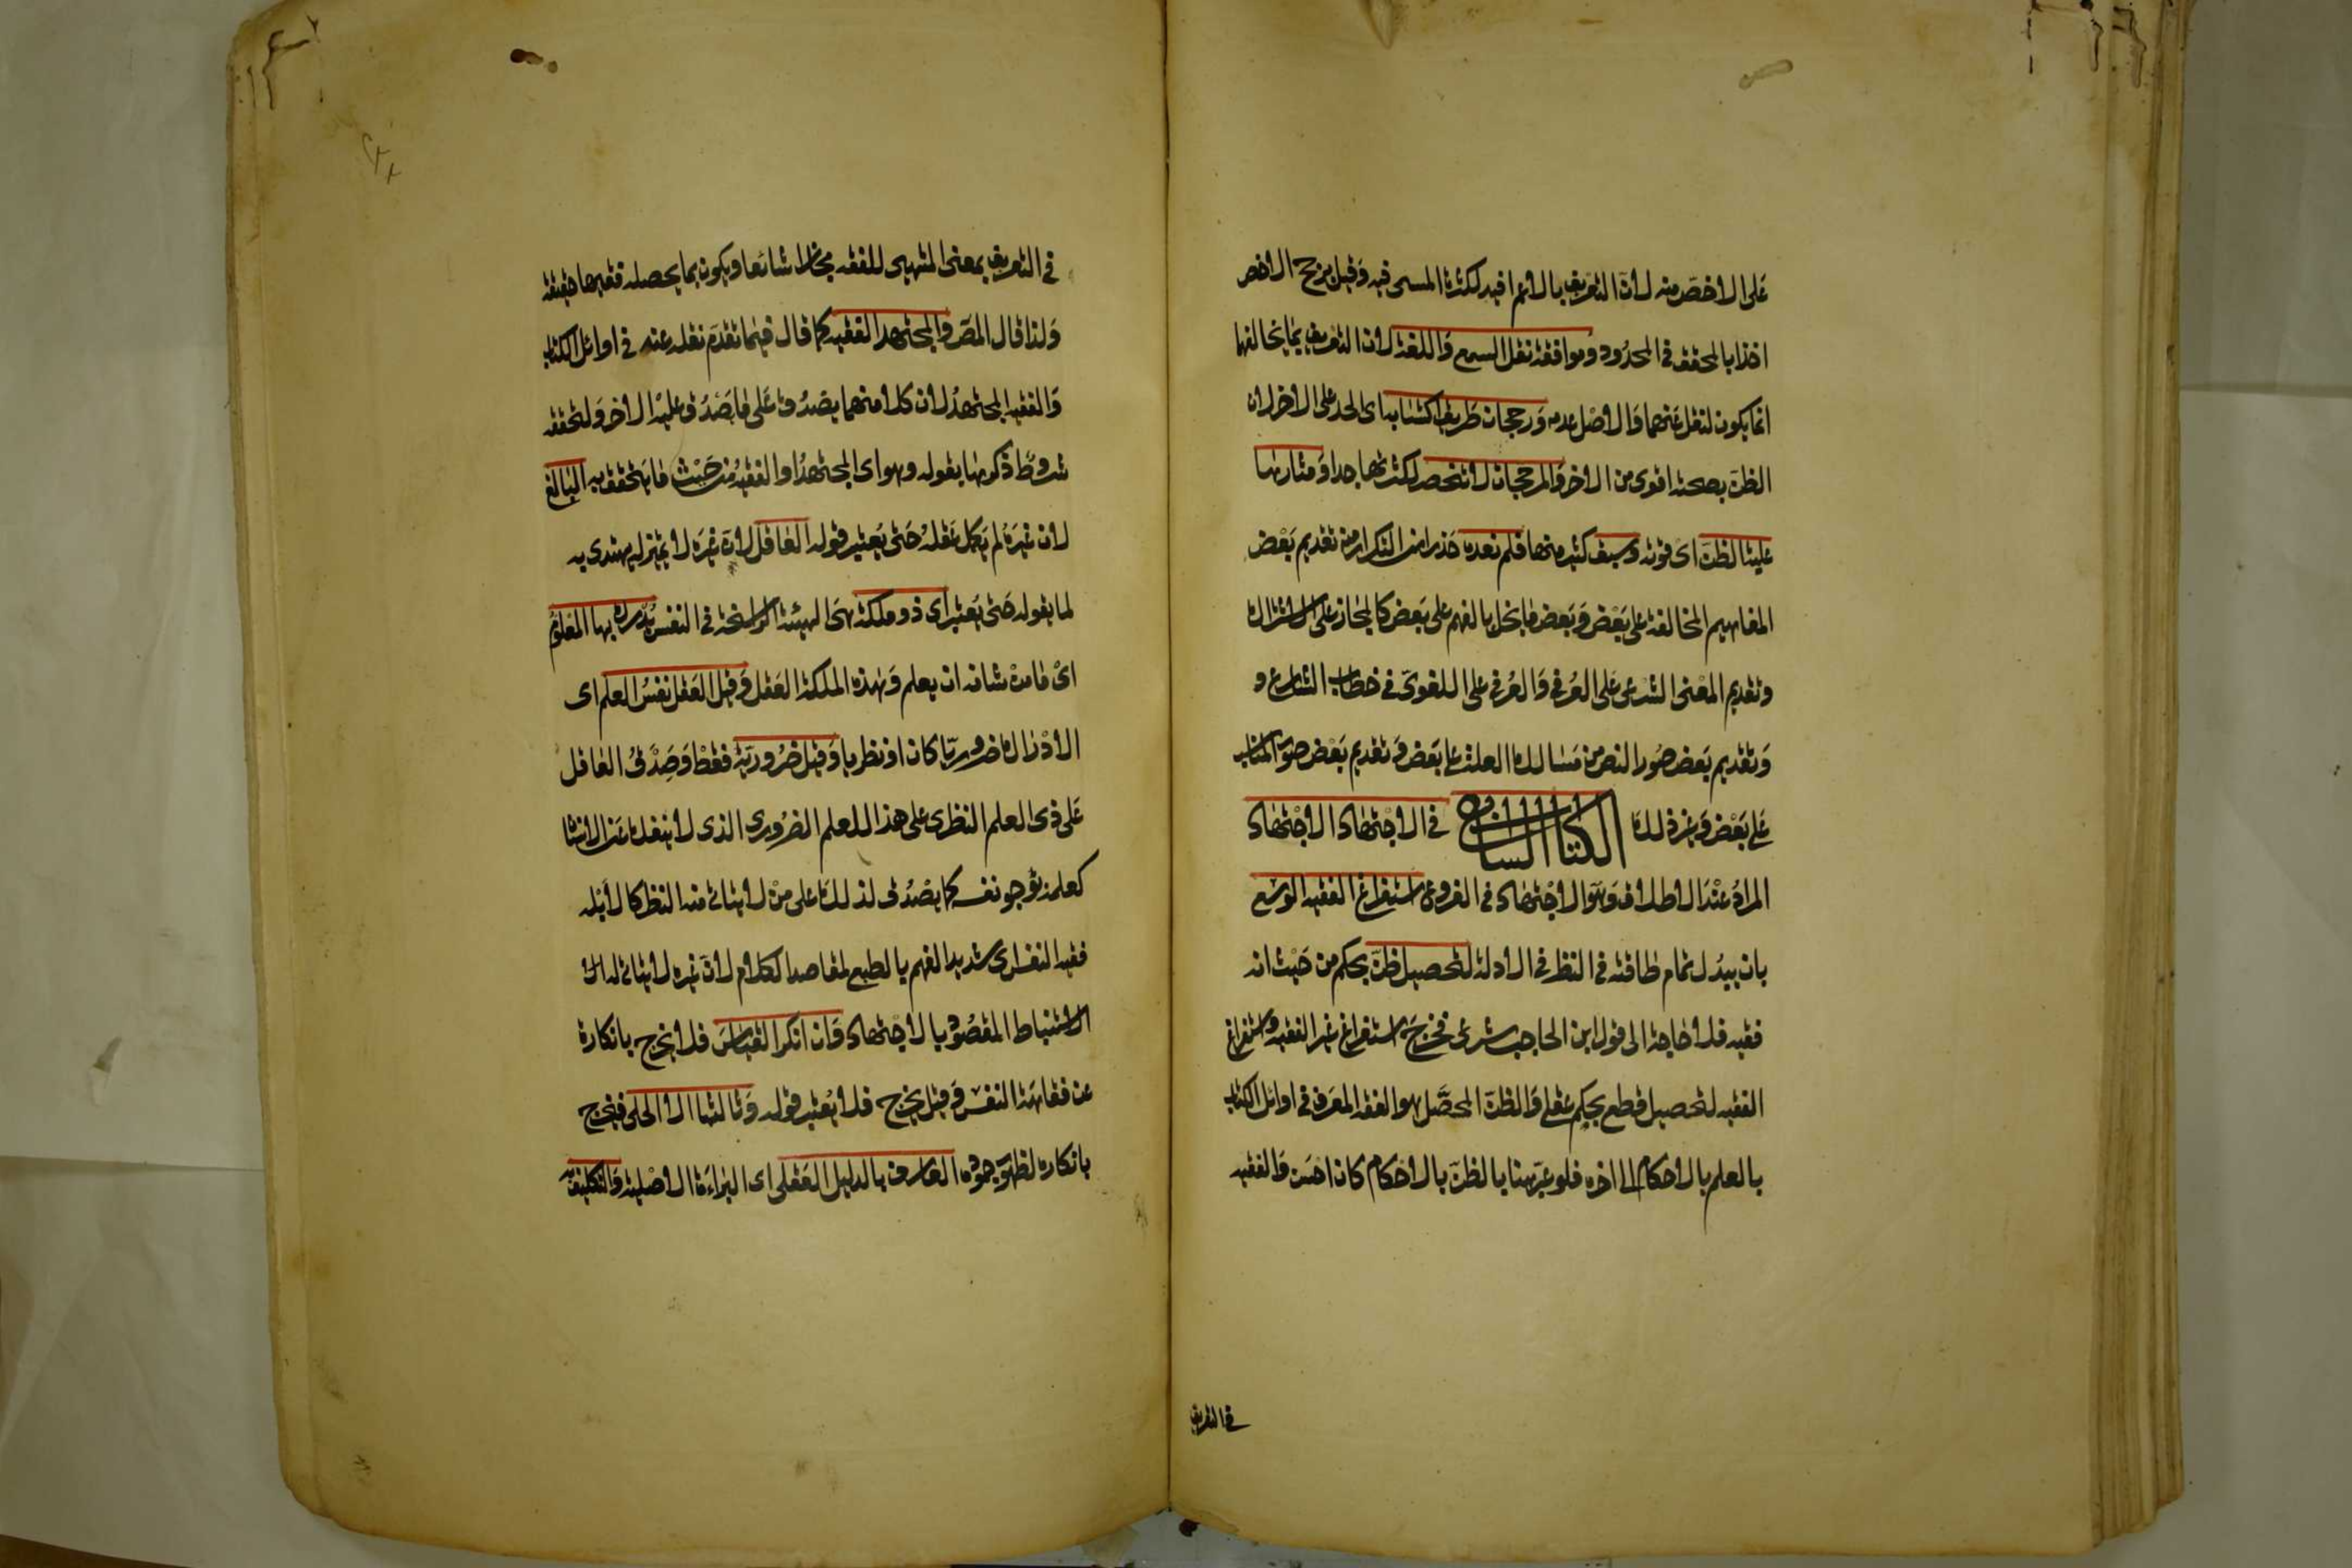 على الاخص منه لان التعريف بالاعم افيد لكثرة المسمى فيه وقيل يرجح الاخص
اخذا بالمحقق في المحدود وموافقة نقل السمع واللغة لان التعريف بما يخالفها
انما يكون لنقل عنهما والاصل عدمه ورجحان طريق اكتسابه اى الحد على الاخر لان
الظن بصحته اقوى من الاخر والمرجحات لا تنحصر لكثرتها جدا ومثارها
غلبة الظن اى قوته وسبق كثير منها فلم نعده حذرا من التكرار من تقديم بعض
المفاهيم المخالفة على بعض وبعض ما يخل بالفهم على بعض كالمجاز على الاشتراك
وتقديم المعنى الشرعى على العرفى والعرفى على اللغوى فى خطاب الشارع و
وتقديم بعض صور النص من مسالك العلة على بعض وتقديم بعض صور المناسب
على بعض وغير ذلك الكتاب السابع فى الاجتهاد الاجتهاد
المراد عند الاطلاق وهو الاجتهاد فى الفروع استفراغ الفقيه الوسع
بان يبذل تمام طاقته فى النظر فى الادلة لتحصيل ظن بحكم من حيث انه
فقيه فلا حاجة الى قول ابن الحاجب شرعى فخرج استفراغ غير الفقيه واستفراغ
الفقيه لتحصيل قطع بحكم عقلى والظن المحصل هو الفقه المعرف فى اوائل الكتاب
بالعلم بالاحكام الى اخره فلو عبر هنا بالظن بالاحكام كان احسن والفقيه
فى التعريف
فى التعريف بمعنى المتهيى للفقه مجازا شائعا ويكون بما يحصله فقيها حقيقة
ولذا قال المص والمجتهد الفقيه كما قال فيما تقدم نقله عنه فى اوائل الكتاب
والفقيه المجتهد لان كلا منهما يصدق على ما يصدق عليه الاخر ولتحققه
شروط ذكرها بقوله وهو اى المجتهد او الفقيه من حيث ما يتحقق به البالغ
لان غيره لم يكمل عقله حتى يعتبر قوله العاقل لان غيره لا تمييز له يهتدى به
لما يقوله حتى يعتبر اى ذو ملكة هى الهيئة الراسخة فى النفس يدرك بها المعلوم
اى ما من شانه ان يعلم وهذه الملكة العقل وقيل العقل نفس العلم اى
الادراك ضروريا كان او نظريا وقيل ضروريه فقط وصدق العاقل
على ذى العلم النظرى على هذا للعلم الضرورى الذى لا ينفك عن الانسان
كعلمه بوجود نفسه كما يصدق لذلك على من لا يتاتى منه النظر كالابله
فقيه النفس اى شديد الفهم بالطبع لمقاصد الكلام لان غيره لا يتاتى له
الاستنباط المقصود بالاجتهاد وان انكر القياس فلا يخرج بانكاره
عن فقاهة النفس وقيل يخرج فلا يعتبر قوله وثالثها الا الجلى فيخرج
بانكاره لظهور جموده العارف بالدليل العقلى اى البراءة الاصلية والتكليف به